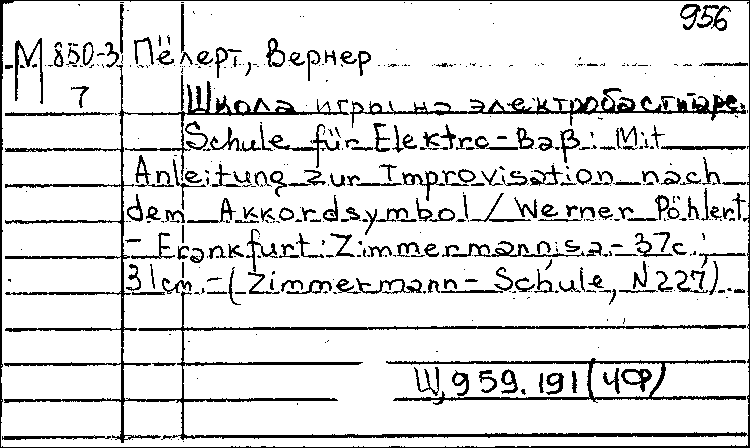 956
М 850-3 Пёлерт, Вернер
7 Школа игры на электробасгитаре.
Schule für Elektro-Baß: Mit
Anleitung zur Improvisation nach
dem Akkordsymbol / Werner Pöhlert.
- Frankfurt: Zimmermann, s.a. - 37с.;
31cm. - (Zimmermann - Schule, N 227)
Щ,959.191(4Ф)